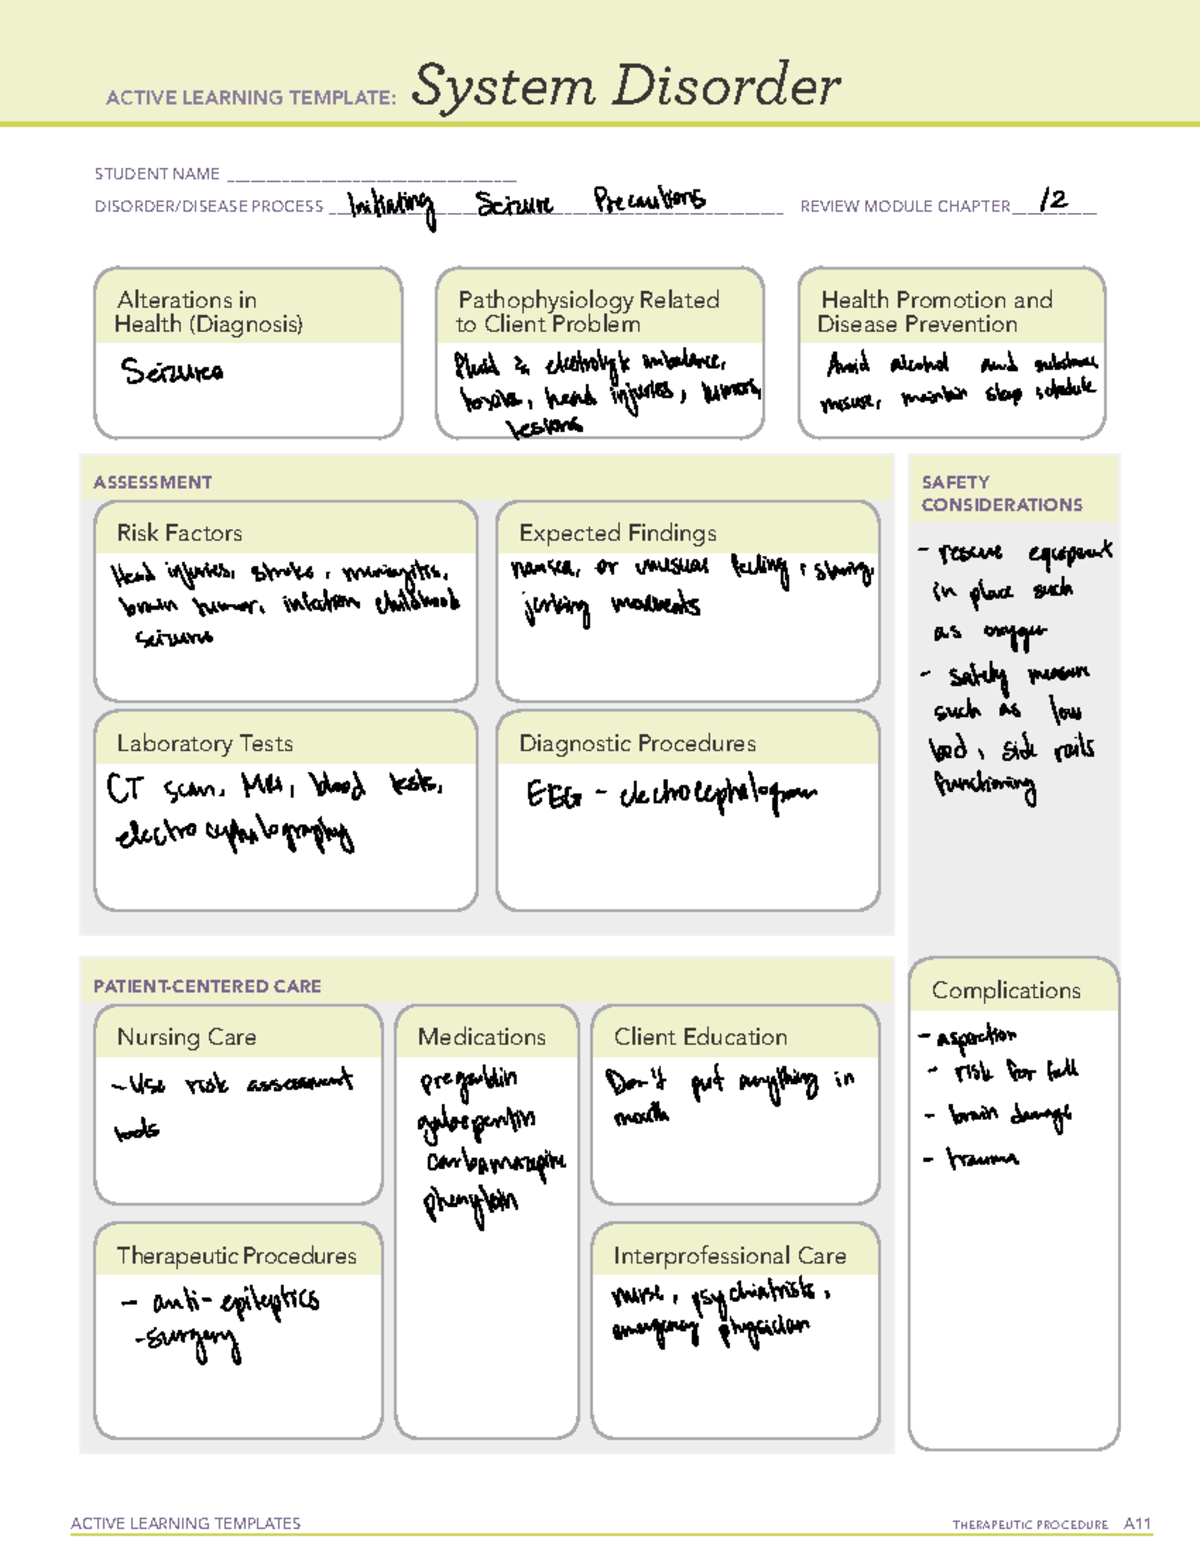 ACTIVE LEARNING TEMPLATE: System Disorder
STUDENT NAME
DISORDER/DISEASE PROCESS Initiating Seizure Precautions REVIEW MODULE CHAPTER 12
Alterations in
Health (Diagnosis)
Seizures
Pathophysiology Related
to Client Problem
Fluid & electrolyte imbalance,
toxins, head injuries, tumors,
lesions
Health Promotion and
Disease Prevention
Avoid alcohol and substance
misuse, maintain sleep schedule
ASSESSMENT
Risk Factors
Head injuries, stroke, meningitis,
brain tumor, infection childhood
seizures
Expected Findings
nausea, or unusual feeling, staring,
jerking movements
Laboratory Tests
CT scan, MRI, blood tests,
Diagnostic Procedures
EEG -
SAFETY
CONSIDERATIONS
- rescue equipment
in place such
as oxygen
- safety measure
such as low
bed, side rails
functioning
PATIENT-CENTERED CARE
Nursing Care
- Use risk assessment
tools
Medications
pregabalin
gabapentin
carbamazepine
phenytoin
Client Education
Don't put anything in
mouth
Therapeutic Procedures
- anti-epileptics
- surgery
Interprofessional Care
nurse, psychiatrists,
emergency physician
Complications
- aspiration
- risk for fall
- brain damage
- trauma
ACTIVE LEARNING TEMPLATES
THERAPEUTIC PROCEDURE A11